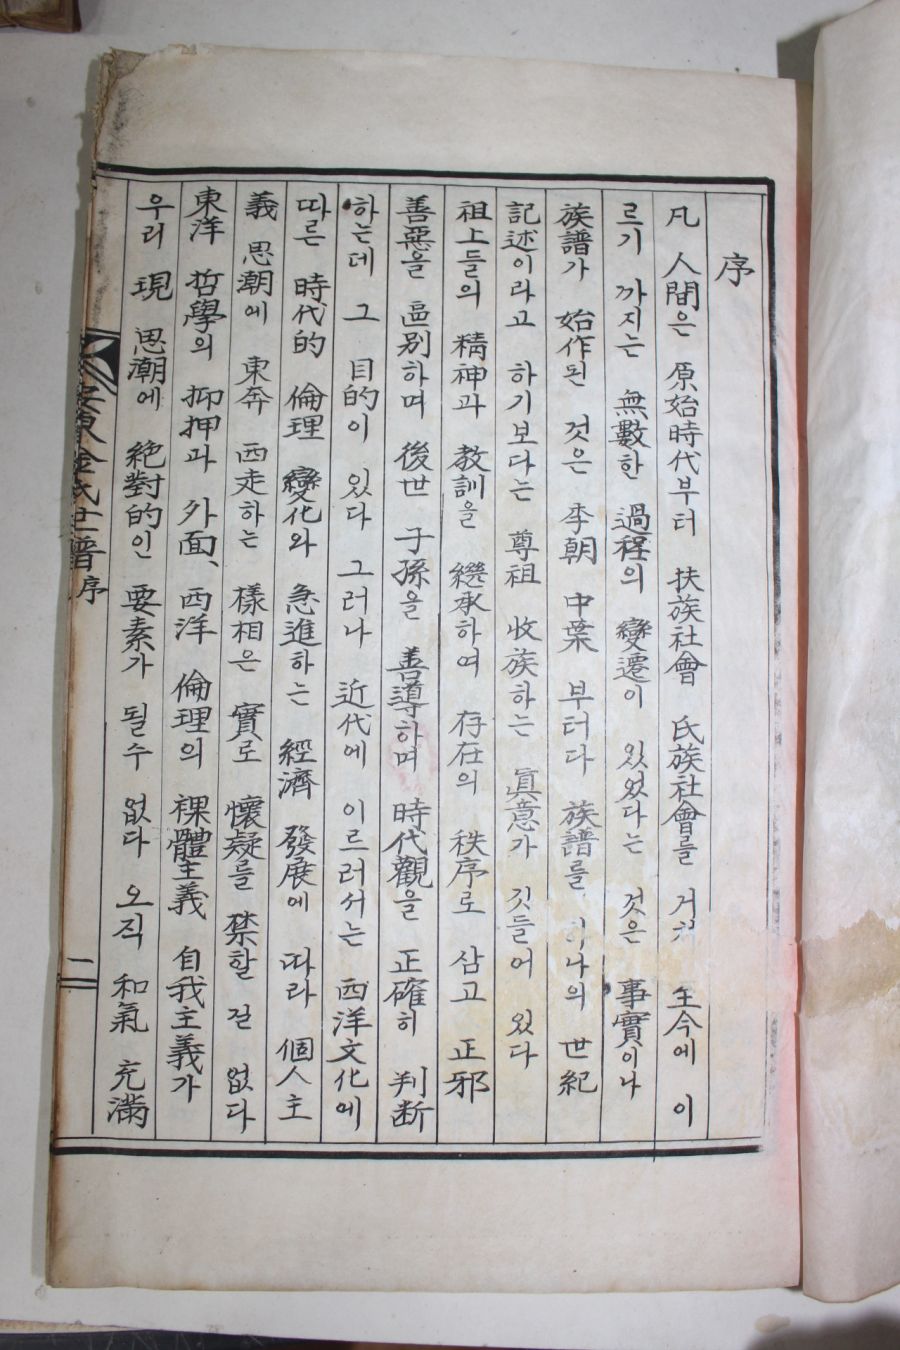 序
凡 人間은 原始時代부터 扶族社會 氏族社會를 거쳐 至今에 이
르기 까지는 無數한 過程의 變遷이 있었다는 것은 事實이나
族譜가 始作된 것은 李朝 中葉 부터다 族譜를 하나의 世紀
記述이라고 하기보다는 尊祖 收族하는 眞意가 깃들어 있다
祖上들의 精神과 敎訓을 繼承하여 存在의 秩序로 삼고 正邪
善惡을 區別하며 後世 子孫을 善導하며 時代觀을 正確히 判断
하는데 그 目的이 있다 그러나 近代에 이르러서는 西洋文化에
따른 時代的 倫理 變化와 急進하는 經濟 發展에 따라 個人主
義 思潮에 東奔 西走하는 樣相은 實로 懷疑를 禁할 길 없다
東洋 哲學의 抑押과 外面、西洋 倫理의 裸體主義 自我主義가
우리 現 思潮에 絶對的인 要素가 될수 없다 오직 和氣 充滿
安東金氏世譜 序
二